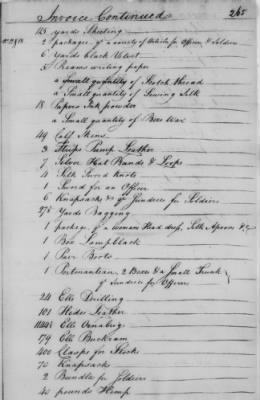 Invoice Continued 265
113 yards Sheeting
2 packages of a variety of Articles for Officers & Soldiers
6 yards black Velvet
5 Reams writing paper
a Small quantity of Scotch Thread
a Small quantity of Sewing Silk
18 Papers Ink powder
a Small quantity of Bees Wax
49 Calf Skins
3 Pump Leather
7 Silver Hat Bands & Loops
4 Silk Sword Knots
1 Sword for an Officer
6 Knapsacks & of Sundries for Soldiers
275 Yards Bagging
1 package of a Womans Head dress, Silk Aprons &c
1 Box Lampblack
1 Pair Boots
1 Portmanteau, 2 Boxes & a Small Trunk
of Sundries for Officers
24 Ells Drilling
101 Hides Leather
Ells Oznabrig
179 Ells Buckram
400 Clasps for Stocks
70 Knapsacks
2 Bundles for Soldiers
40 pounds Hemp